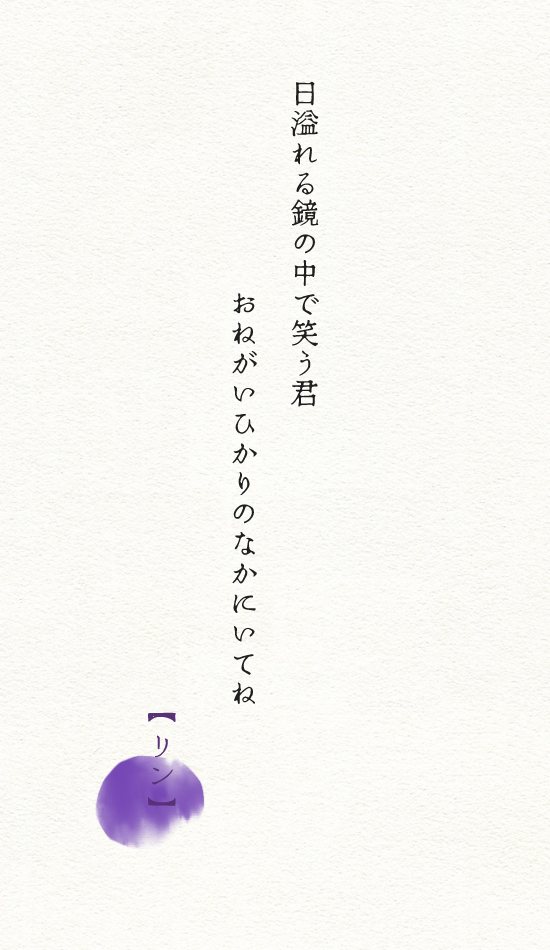 日溢れる鏡の中で笑う君
おねがいひかりのなかにいてね
【リン】